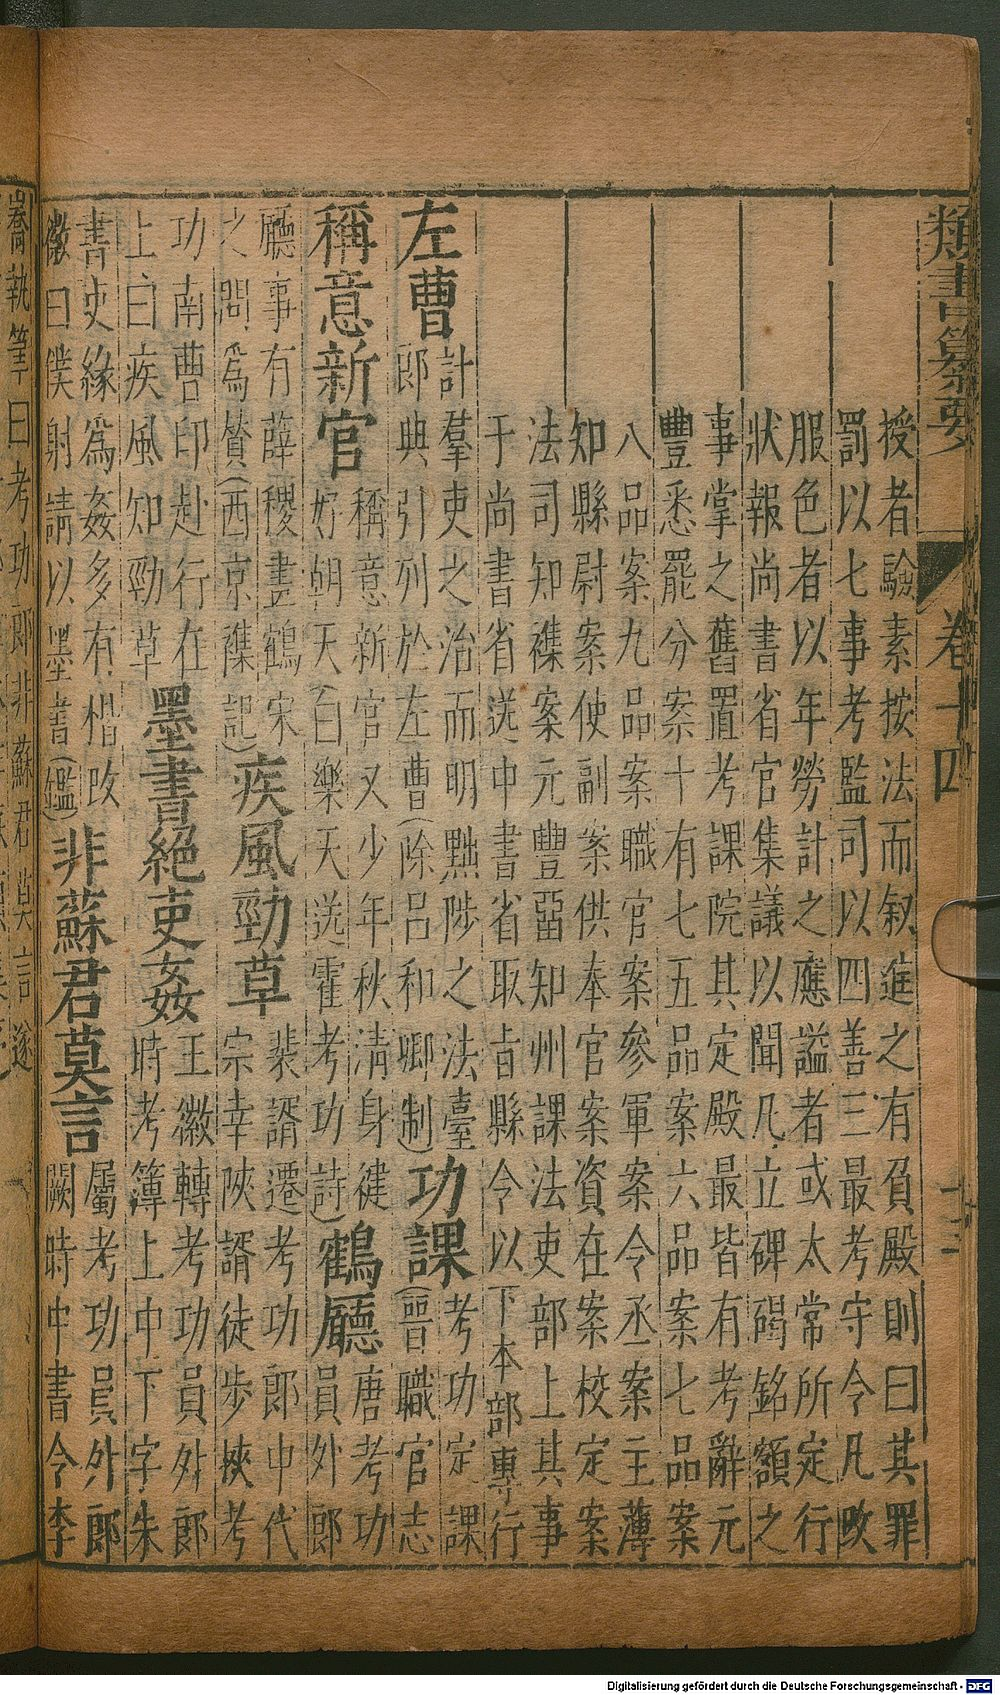 類書纂要 卷十四 十二
授者驗素按法而敘進之有負殿則曰其罪
罰以七事考監司以四善三最考守令凡改
服色者以年勞計之應謚者或太常所定行
狀報尚書省官集議以聞凡立碑碣銘額之
事掌之舊置考課院其定殿最皆有考辭元
豐悉罷分案十有七五品案六品案七品案
八品案九品案職官案參軍案令丞案主薄
知縣尉案使副案供奉官案資在案校定案
法司知襍案元豐知州課法吏部上其事
于尚書省送中書省取旨縣令以下本部專行
左曹
計羣吏之治而明黜陟之法臺
郎典引列於左曹(除呂和卿制)
功課
考功定課
(晉職官志
稱意新官
稱意新官又少年秋清身健
好朝天白樂天送霍考功詩)
鶴廳
唐考功
員外郎
廳事有薛稷畫鶴宋
之問為贊(西京襍記)
疾風勁草
裴諝遷考功郎中代
宗幸陝諝徒步挾考
功南曹印赴行在
上曰疾風知勁草
墨書絕吏姦
王徽轉考功員外郎
時考簿上中下字朱
書吏緣為姦多有楷改
徽曰僕射請以墨書(鑑)
非蘇君莫言
屬考功員外郎
闕時中書令李
嶠執筆曰考功郎非蘇君莫言遂
Digitalisierung gefördert durch die Deutsche Forschungsgemeinschaft - DFG